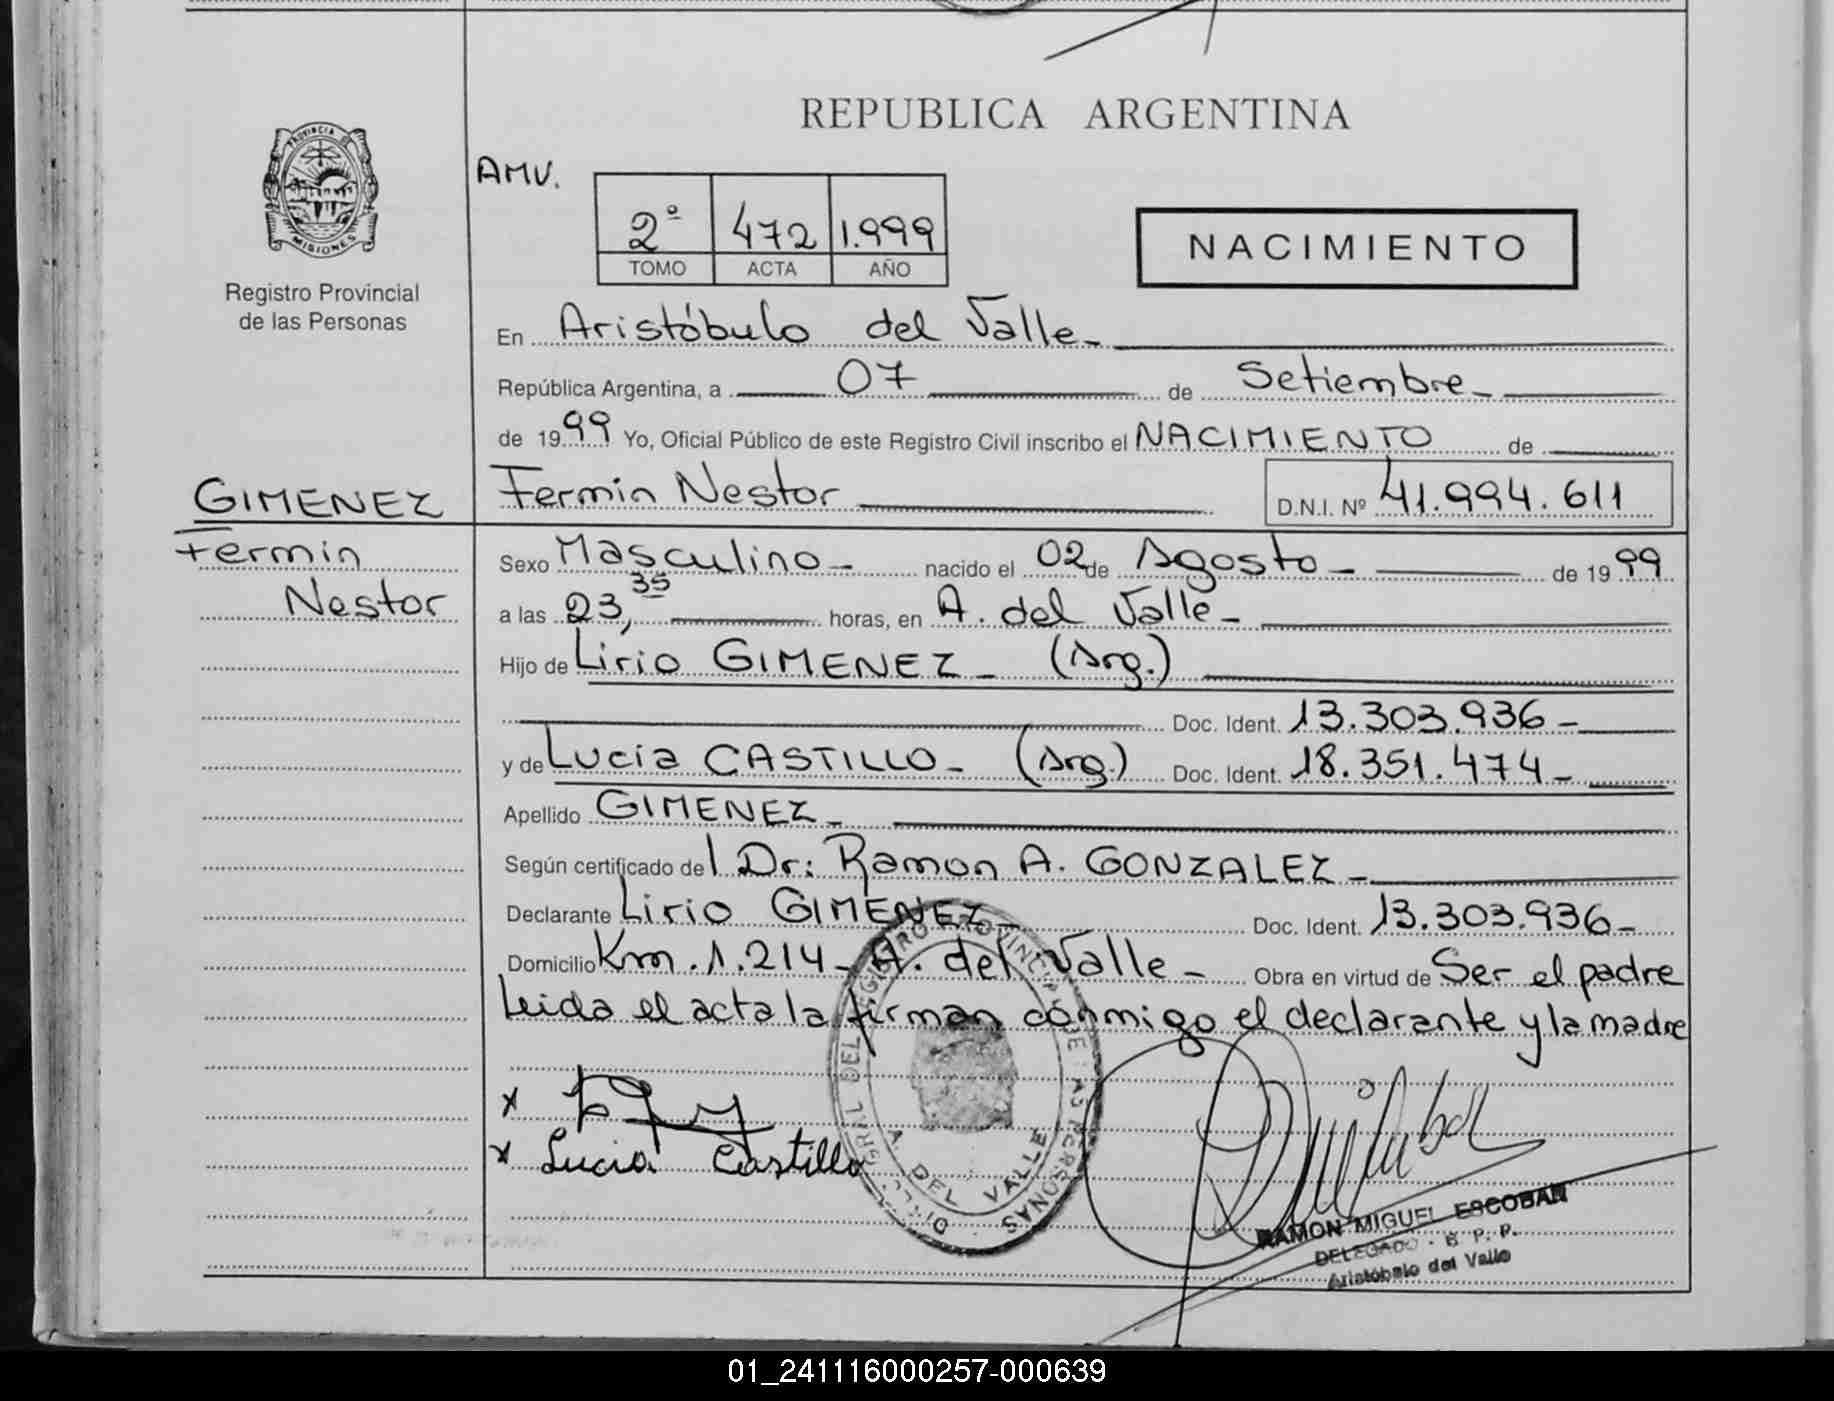 REPUBLICA ARGENTINA
PROVINCIA DE
MISIONES
Registro Provincial
de las Personas
AMV.
2º 472 1.999
TOMO ACTA AÑO
NACIMIENTO
En Aristóbulo del Valle_
República Argentina, a 07 de Setiembre_
de 1999 Yo, Oficial Público de este Registro Civil inscribo el NACIMIENTO de
GIMENEZ
Fermin Nestor D.N.I. Nº 41.994.611
Fermin
Nestor
Sexo Masculino_ nacido el 02 de Agosto_ de 1999
a las 23,35 horas, en A. del Valle_
Hijo de Lirio GIMENEZ_ (Arg.)
Doc. Ident. 13.303.936_
y de Lucia CASTILLO_ (Arg.) Doc. Ident. 18.351.474_
Apellido GIMENEZ_
Según certificado del Dr: Ramon A. GONZALEZ_
Declarante Lirio GIMENEZ_ Doc. Ident. 13.303.936_
Domicilio Km. 1.214_ A. del Valle_ Obra en virtud de Ser el padre
Leida el acta la firman conmigo el declarante y la madre
x
x Lucia Castillo
REGISTRO PROVINCIAL DE LAS PERSONAS
A. DEL VALLE
RAMON MIGUEL ESCOBAR
DELEGADO - R. P. P.
Aristóbulo del Valle
01_241116000257-000639